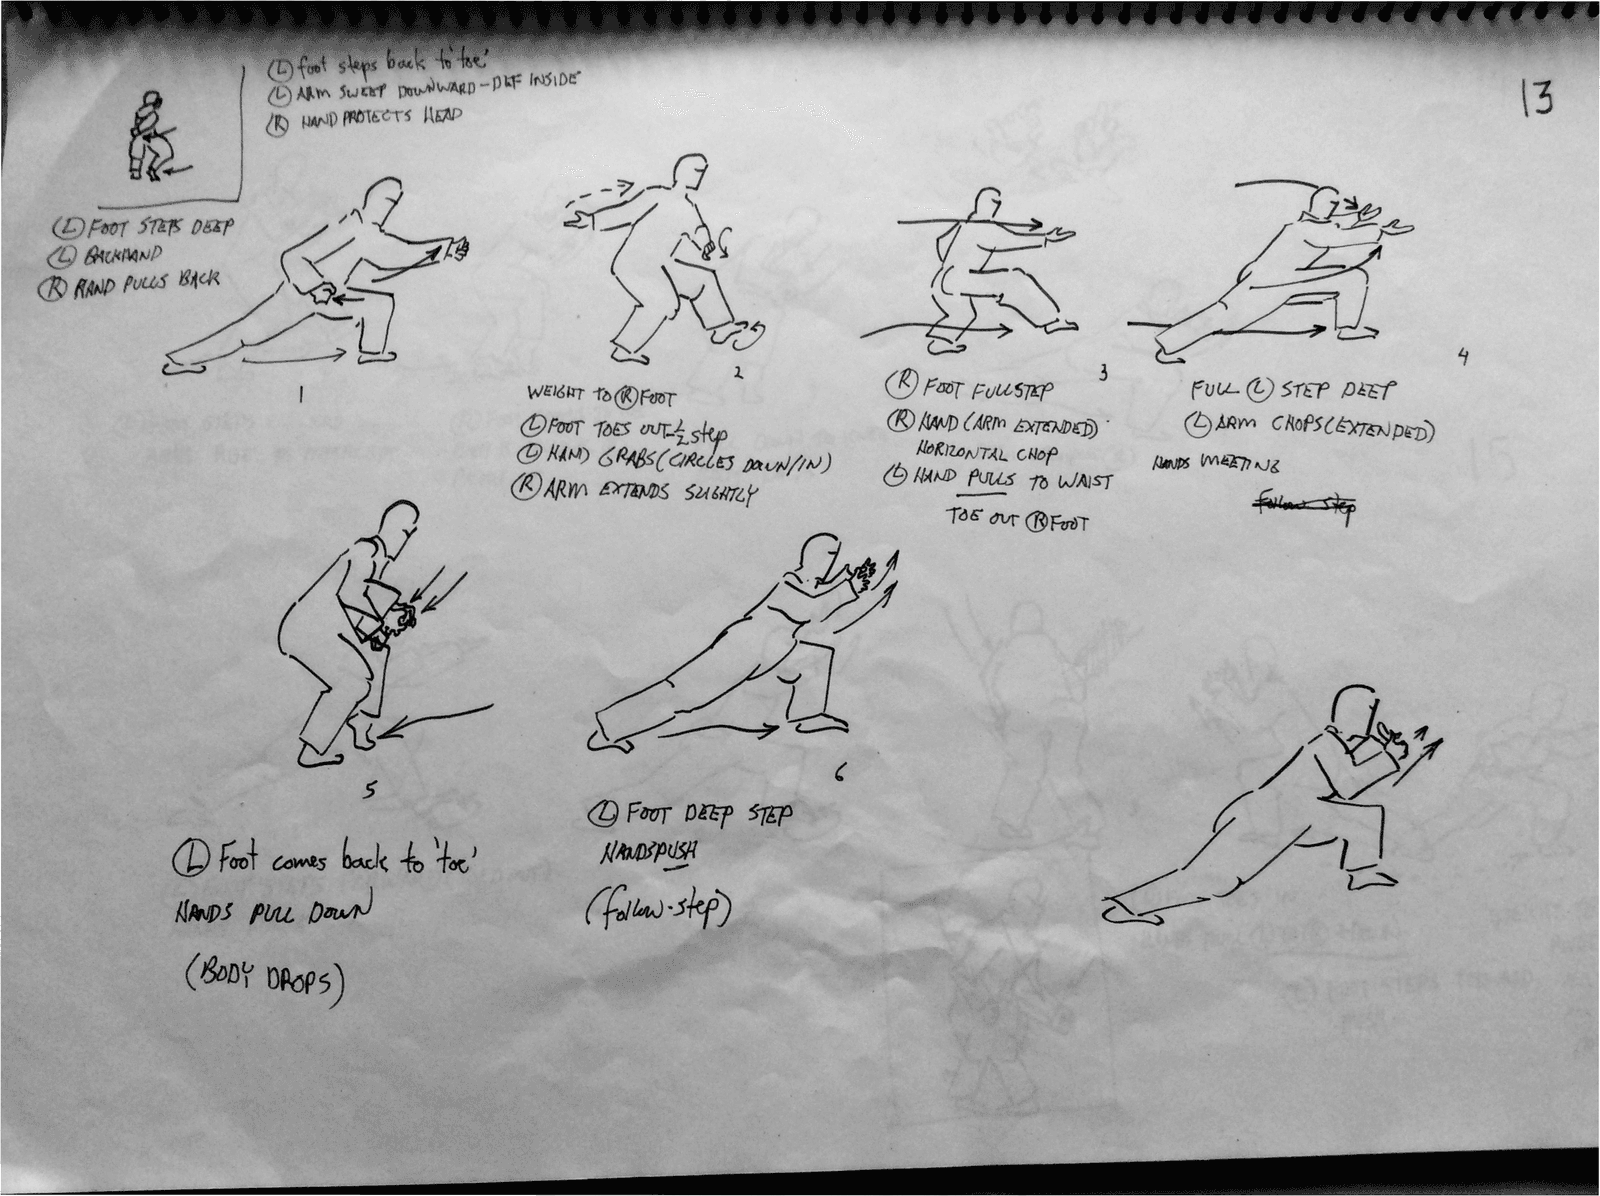 13
Ⓛ foot steps back to 'toe'
Ⓛ ARM SWEEP DOWNWARD - DEF INSIDE
Ⓡ HAND PROTECTS HEAD
Ⓛ FOOT STEPS DEEP
Ⓛ BACKHAND
Ⓡ HAND PULLS BACK
1
2
WEIGHT TO Ⓡ FOOT
Ⓛ FOOT TOES OUT - 1/2 step
Ⓛ HAND GRABS (CIRCLES DOWN/IN)
Ⓡ ARM EXTENDS SLIGHTLY
3
Ⓡ FOOT FULL STEP
Ⓡ HAND (ARM EXTENDED)
HORIZONTAL CHOP
Ⓛ HAND PULLS TO WAIST
TOE OUT Ⓡ FOOT
4
FULL Ⓛ STEP DEEP
Ⓛ ARM CHOPS (EXTENDED)
HANDS MEETING
Follow step
5
Ⓛ Foot comes back to 'toe'
HANDS PULL DOWN
(BODY DROPS)
6
Ⓛ FOOT DEEP STEP
HANDS PUSH
(follow-step)